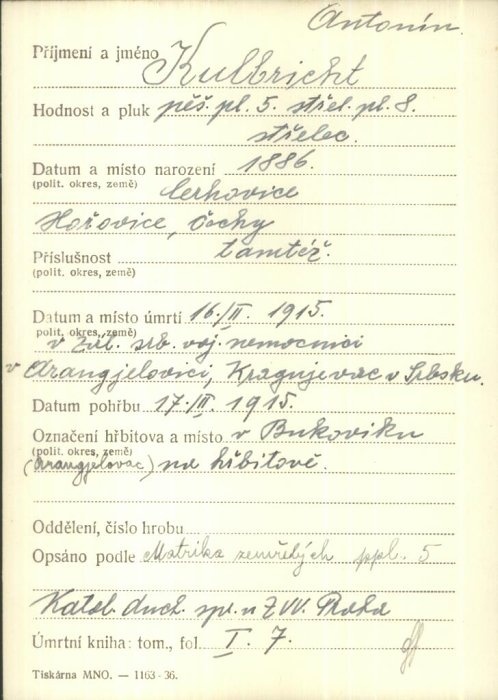 Antonín.
Příjmení a jméno Kulbricht
Hodnost a pluk pěš. pl. 5. střel. pl. 8.
střelec.
Datum a místo narození 1886.
(polit. okres, země) Cerhovice
Hořovice, Čechy
Příslušnost tamtéž.
(polit. okres, země)
Datum a místo úmrtí 16./II. 1915.
polit. okres, země)
v zál. srb. voj. nemocnici
v Arangjelovici, Kragujevac v Srbsku.
Datum pohřbu 17./II. 1915.
Označení hřbitova a místo v Bukoviku
(polit. okres, země)
(Arangjelovac) na hřbitově.
Oddělení, číslo hrobu
Opsáno podle Matrika zemřelých ppl. 5
Katol. duch. spr. u ZVV. Praha
Úmrtní kniha: tom., fol. I. 7.
Tiskárna MNO. — 1163-36.